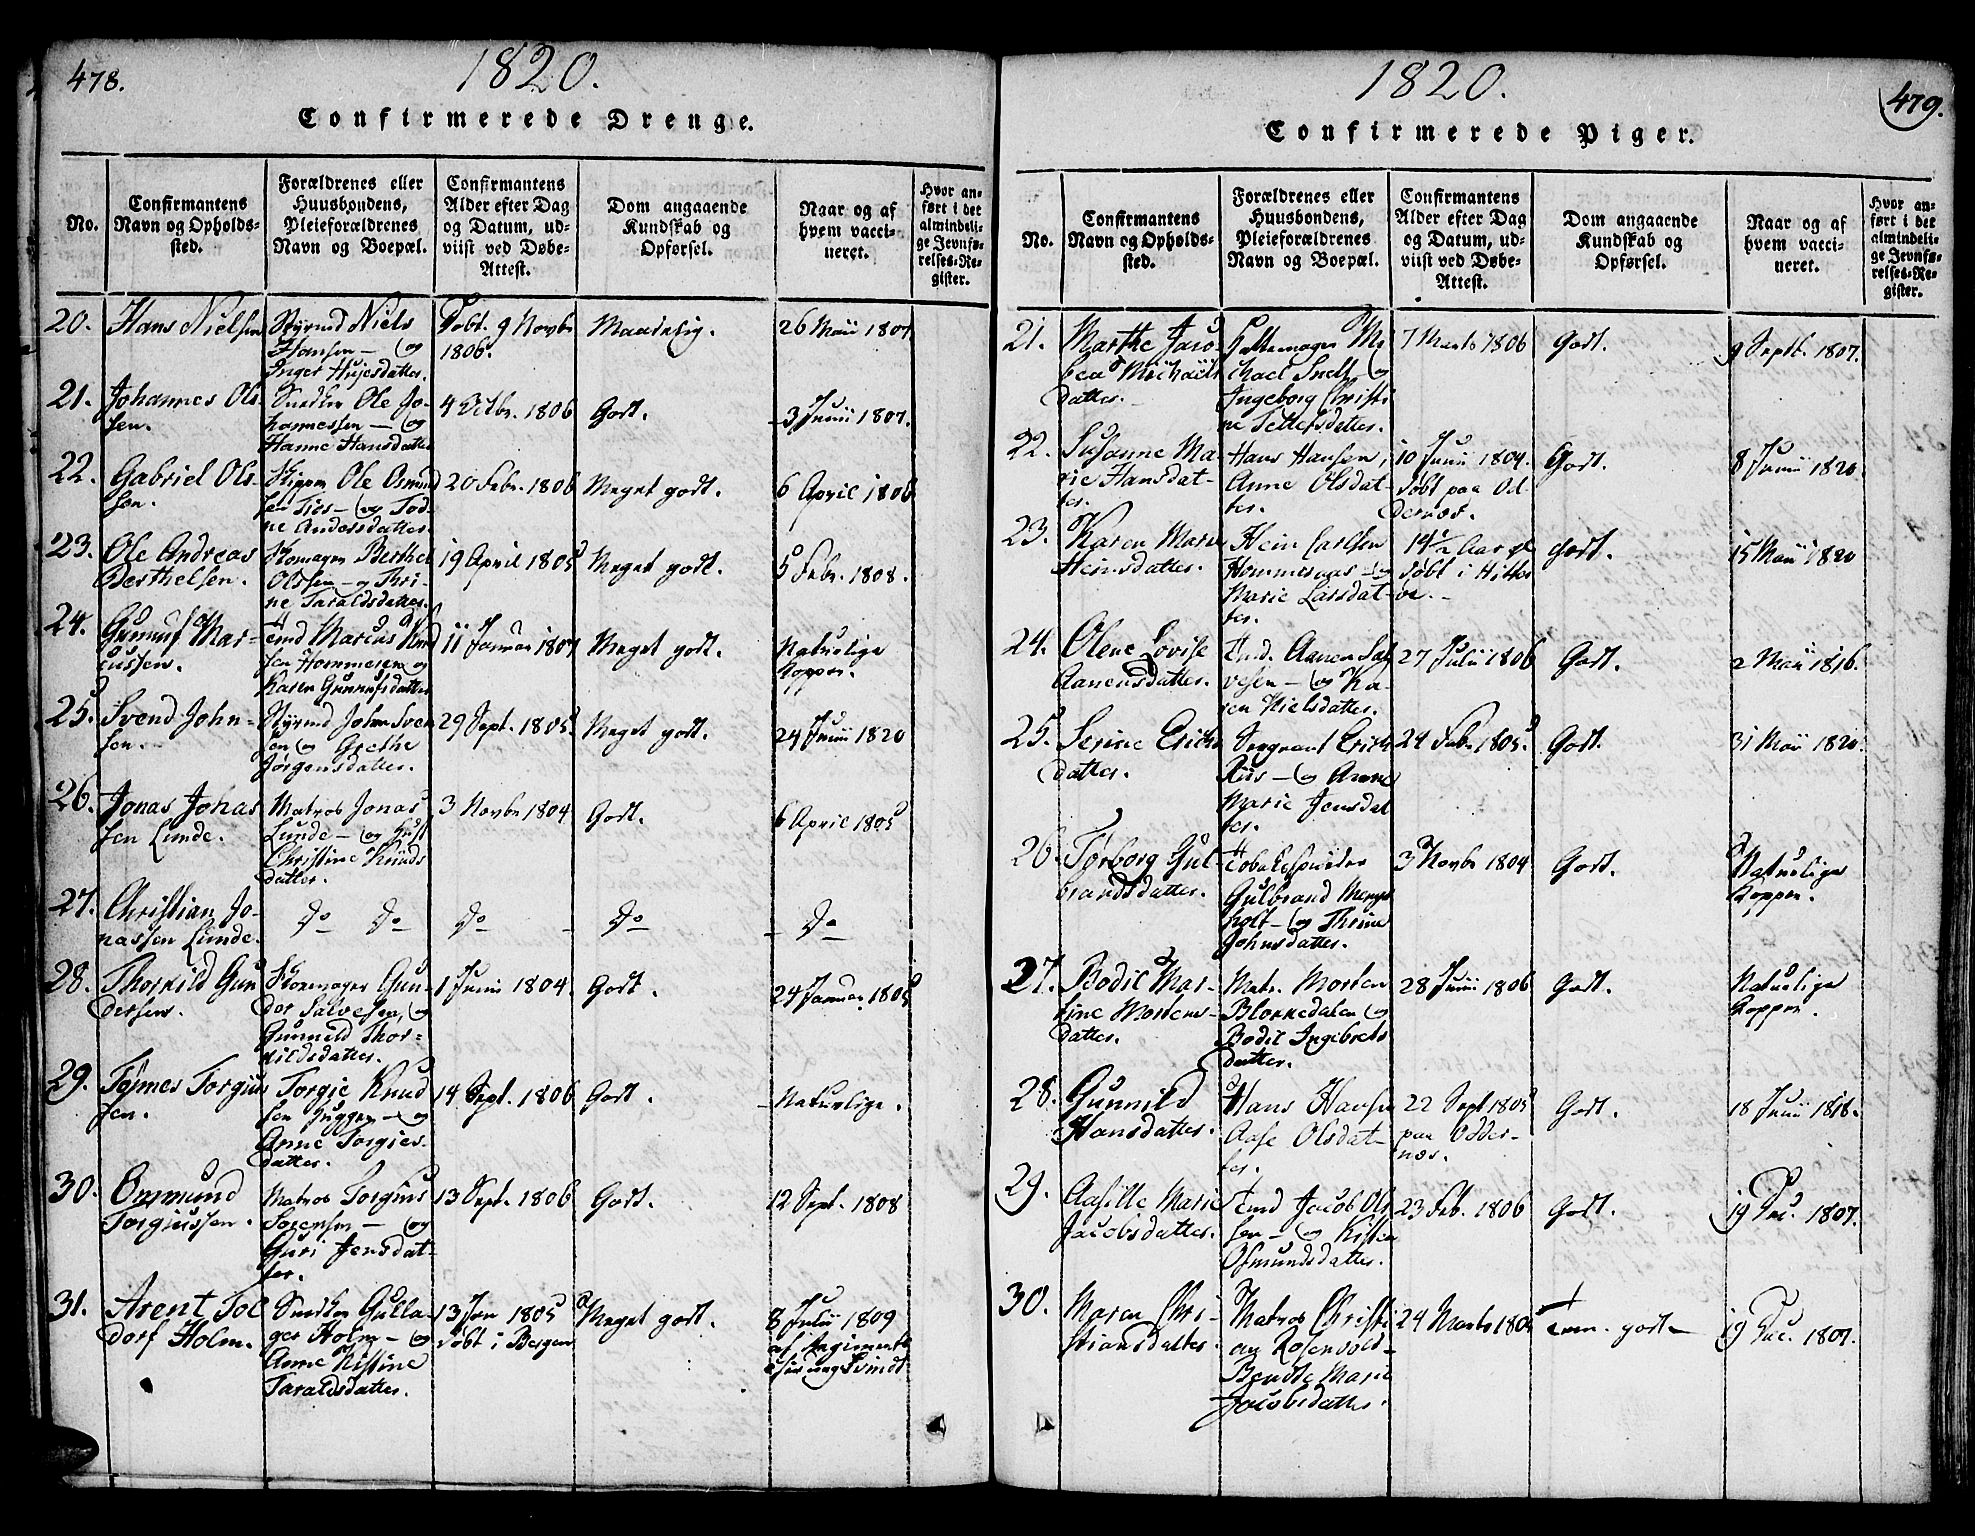 478.
1820.
Confirmerede Drenge.
No.
Confirmantens
Navn og Opholds-
sted.
Forældrenes eller
Huusbondens,
Pleieforældrenes
Navn og Boepæl.
Confirmantens
Alder efter Dag
og Datum, ud-
viist ved Døbe-
Attest.
Dom angaaende
Kundskab og
Opførsel.
Naar og af
hvem vacci-
neret.
Hvor an-
ført i det
almindeli-
ge Jevnfø-
relses-Re-
gister.
20.
Hans Nielsen
Styrmd Niels
Hansen - og
Inger
Døbt. 9 Novbr
1806.
Maadelig.
26 Maii 1807
21.
Johannes Ols-
sen.
Snedker Ole Jo-
hannessen - og
Hanne Hansdatter
4 Octbr. 1806
Godt.
3 Junii 1807.
22.
Gabriel Ols-
sen.
Skipper Ole Osmund
sen Ties - og Tod-
ne Andersdatter.
20 Febr. 1806
Meget godt.
6 April 1806
23.
Ole Andreas
Berthelsen.
Skomager Berthel
Olssen - og Thri-
ne Taraldsdatter.
19 April 1805
Meget godt.
5 Febr. 1808.
24.
Gunnuf Mar-
cussen.
Tmd Marcus Knud
sen Hommeren og
Karen Gunnufsdatter
11 Januar 1807
Meget godt.
Naturlige
Kopper.
25.
Svend John-
sen.
Styrmd John Sven
sen og Grethe
Jørgensdatter.
29 Sept. 1805.
Meget godt.
24 Junii 1820
26.
Jonas Johas
sen Lunde.
Matros Jonas
Lunde - og
Christine Knuds
datter.
3 Novbr 1804
Godt.
6 April 1805
27.
Christian Jo-
nassen Lunde.
Do Do
Do
Do
Do
28.
Thorkild Gun
dersen.
Skomager Gun-
der Salvesen, og
Gunnild Thor-
kildsdatter.
1 Junii 1804.
Godt.
24 Januar 1805
29.
Tønnes Torgius
sen.
Torgie Knud
sen - og
Anne Torgies-
datter.
14 Sept. 1806
Godt.
Naturlige.
30.
Ommund
Torgiussen.
Matros Torgius
Sørensen - og
Guri Jensdat-
ter.
13 Sept. 1806
Godt.
12 Sept. 1808
31.
Arent Tol
dorf Holm.
Snedker Gulla-
ger Holm - og
Anne Kistine
Taraldsdatter.
13 Jan 1805
døbt i Bergen
Meget godt.
8 Julii 1809
af Regiments
Chirurg Svindt
1820.
479.
Confirmerede Piger.
No.
Confirmantens
Navn og Opholds-
sted.
Forældrenes eller
Huusbondens,
Pleieforældrenes
Navn og Boepæl.
Confirmantens
Alder efter Dag
og Datum, ud-
viist ved Døbe-
Attest.
Dom angaaende
Kundskab og
Opførsel.
Naar og af
hvem vacci-
neret.
Hvor an-
ført i det
almindeli-
ge Jevnfø-
relses-Re-
gister.
21.
Marthe Jaco
bea Michaels
datter.
Hattemager Mi
chael Snell - og
Ingeborg Christi
ne Pettersdatter.
7 Marts 1806
Godt.
9 Septb. 1807.
22.
Susanne Ma-
rie Hansdat-
ter.
Hans Hansen,
Anne Olsdat-
ter.
10 Junii 1804.
døbt paa Od-
dernæs.
Godt.
8 Junii 1820
23.
Karen Marie
Heinsdatter.
Hein Carlsen
Hommernæs - og
Marie Larsdat-
ter.
14 1/2 Aar gl
døbt i Hitter
øe. -
Godt.
15 Maii 1820
24.
Olene Lovise
Aanensdatter.
Tmd. Aanen Sal
vesen - og Ka-
ren Nielsdatter.
27 Julii 1806
Godt.
2 Maii 1816.
25.
Serine Erichs
datter.
Sergeant Erich
Riis - og Anne
Marie Jensdat
ter.
24 Febr 1805.
Godt.
31 Maii 1820.
26.
Torborg Gul-
brandsdatter.
Tobakspinder
Gulbrand
holt - og Thrine
Johnsdatter.
3 Novbr 1804
Godt.
Naturlige
Kopper.
27.
Bodil Mar-
tine Mortens-
datter.
Matr. Morten
Blokkedalen og
Bodil Ingebrets
datter.
28 Junii 1806
Godt.
Naturlige
Kopper.
28.
Gunnild
Hansdatter.
Hans Hansen
Aase Olsdat-
ter.
22 Sept 1805
paa Odder-
næs.
Godt.
18 Junii 1818.
29.
Aasille Marie
Jacobsdatter.
Tmd Jacob Ols
sen - og Kisten
Osmundsdatter.
23 Feb. 1806
Godt.
19 Dec. 1807.
30.
Maren Chri-
stiansdatter.
Matros Christi
an Rosenvold -
Bendte Marie
Jacobsdatter.
24 Marts 1805
Tem. godt -
19 Dec. 1807.